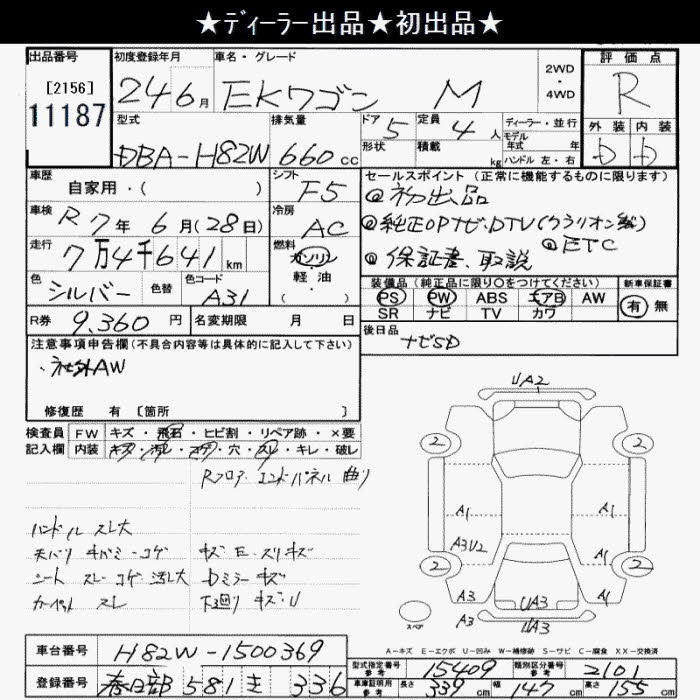 ★ディーラー出品★初出品★
出品番号
[2156]
11187
初度登録年月
24 6月
車名・グレード
EKワゴン M
2WD
・
4WD
評価点
R
外装 内装
D D
型式
DBA-H82W
排気量
660 cc
ドア 5
形状
定員 4 人
積載 kg
ディーラー・並行
モデル
年式 年
ハンドル 左・右
車歴
自家用・( )
シフト
F5
車検
R7年 6月(28日)
冷房
AC
走行
7万4千641 km
燃料
ガソリン
軽油
( )
色
シルバー
色替
色コード
A31
R券 9,360 円
名変期限 月 日
セールスポイント(正常に機能するものに限ります)
@初出品
@純正OPナビ・DTV(クラリオン製)
@ETC
@保証書、取説
装備品(純正品に限り○をつけてください)
PS PW ABS エアB AW
SR ナビ TV カワ
新車保証書
有 無
後日品
ナビSD
注意事項申告欄(不具合内容等は具体的に記入して下さい)
・社外AW
修復歴 有 [箇所 ]
検査員
記入欄
FW キズ・飛石・ヒビ割・リペア跡・×要
内装 キズ・汚レ・コゲ・穴・スレ・キレ・破レ
Rフロア・エンドパネル 曲り
ハンドル スレ大
天バリ キバミ・コゲ
シート スレ コゲ 汚レ大
カーペット スレ
キズ E・スリキズ
Dミラー キズ
下廻り キズ・U
UA2
2 2
A1 A1
A3U2 A1
2 2
A3 UA3 A1
A3 UA3
スペア
A-キズ E-エクボ U-凹み W-補修跡 S-サビ C-腐食 XX-交換済
車台番号
H82W-1500369
登録番号
春日部 581 き 336
型式指定番号
参考
15409
類別区分番号
参考
2101
車庫証明用
参考
長さ 339 cm
幅 147 cm
高さ 155 cm